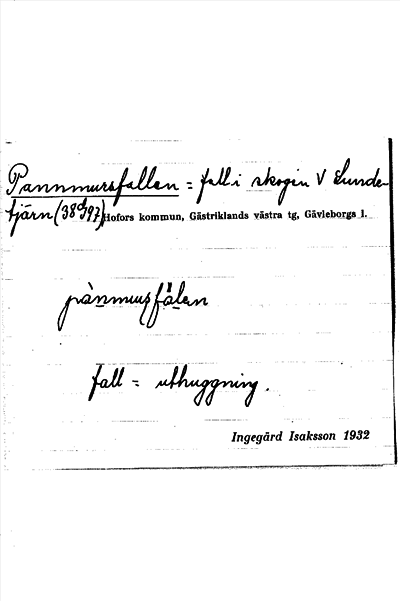 Pannmursfallen = fall i skogen V Lunde-
tjärn (38d97) Hofors kommun, Gästriklands västra tg, Gävleborgs l.
pànmusfälen
fall = uthuggning.
Ingegärd Isaksson 1932